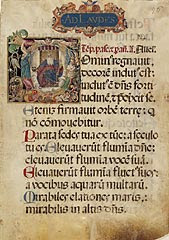 AD LAVDES
Dñs regnauit,
decorē indut⁹ est:
indut⁹ ē dñs forti
tudinē, τ p̄cixit se.
Etenis firmauit orbē terre: q̄
nō cōmouebitur.
Parata sedes tua ex tūc: a seculo
tu es. Eleuauerūt flumia dñe:
eleuauerūt flumīa vocē suā.
Eleuauerūt flumīa fluct⁹ suos:
a vocibus aquarū multarū.
Mirabiles elationes maris:
mirabilis in altis dñs.